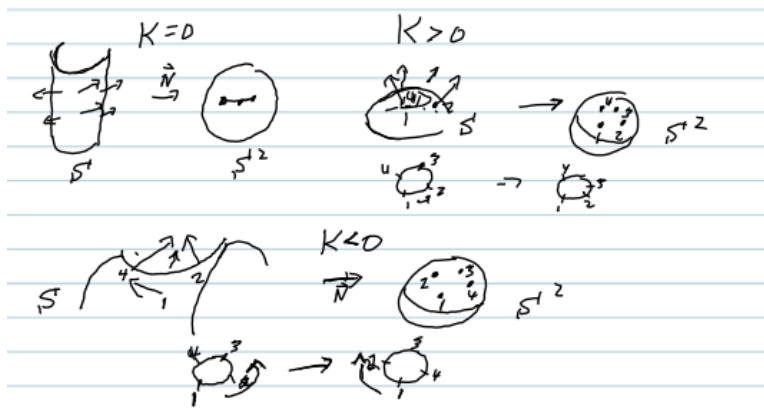 K=0 K>0
N
S S²
1 2 4 S
4 3 1 2 S²
4 3 1 2
4 3 1 2
K<0
S 4 1 2
N
2 3 1 4 S²
4 3 1 2
2 3 1 4